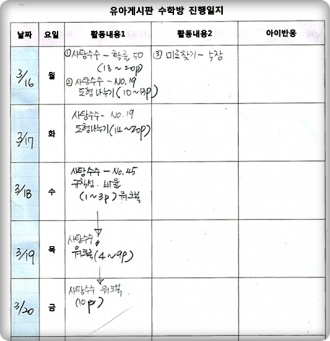 유아게시판 수학방 진행일지
날짜 요일 활동내용1 활동내용2 아이반응
3/16 월 ① 사탕수수 - 학습 50 ③ 미로찾기 - 5장
(18~20p)
② 사탕수수 - NO.19
도형나누기(10~13p)
3/17 화 사탕수수 - NO.19
도형나누기(14~20p)
3/18 수 사탕수수 - NO.45
규칙성
(1~3p) 워크북
3/19 목 사탕수수
워크북(4~9p)
3/20 금 사탕수수 워크북
(10p)